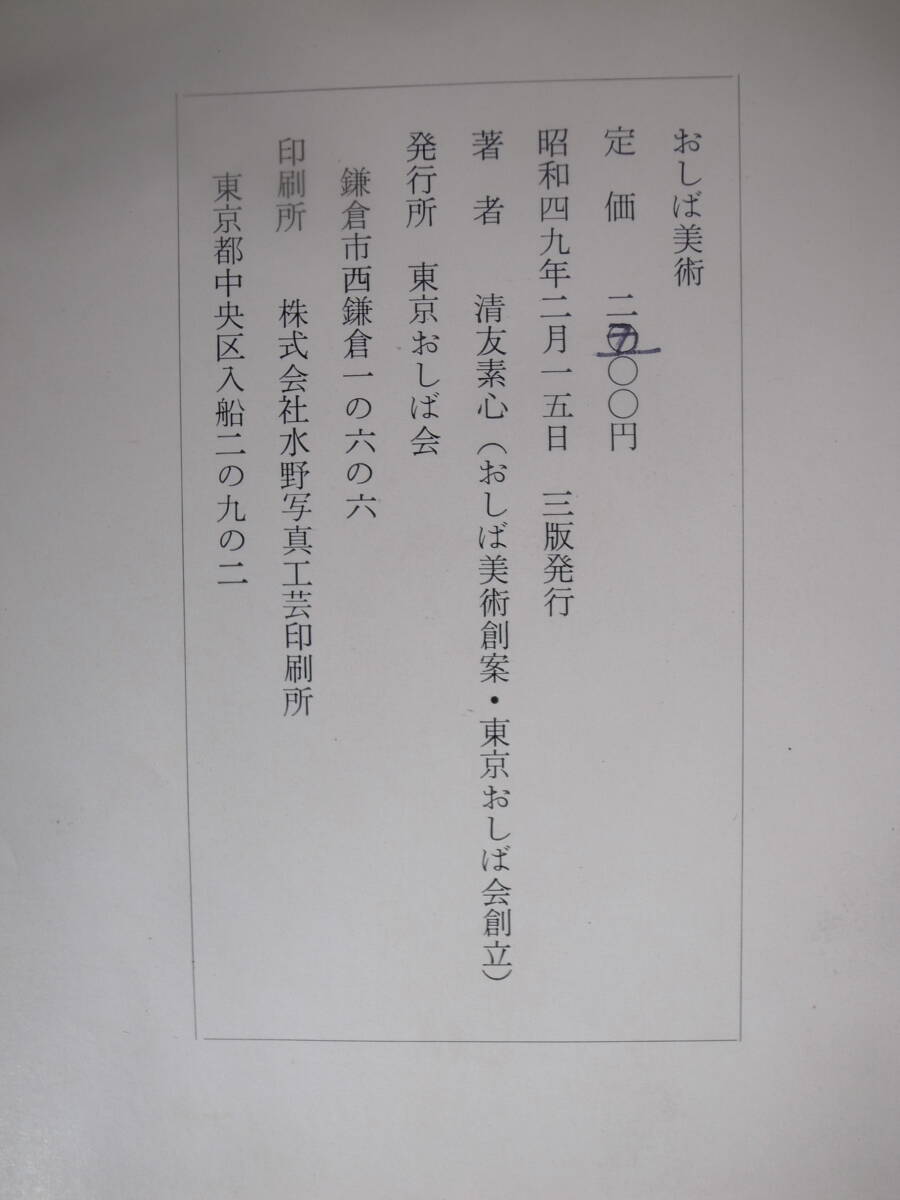 おしば美術
定価 二〇〇〇円
昭和四九年二月一五日 三版発行
著者 清友素心（おしば美術創案・東京おしば会創立）
発行所 東京おしば会
鎌倉市西鎌倉一の六の六
印刷所 株式会社水野写真工芸印刷所
東京都中央区入船二の九の二